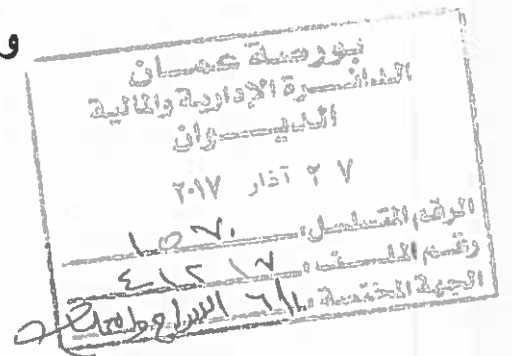 و
بورصة عمان
الدائرة الإدارية والمالية
الديوان
٢٧ آذار ٢٠١٧
الرقم المتسلسل: ١٥٧٠
رقم الملف: ٤١٢١٧
الجهة المختصة: الإدراج